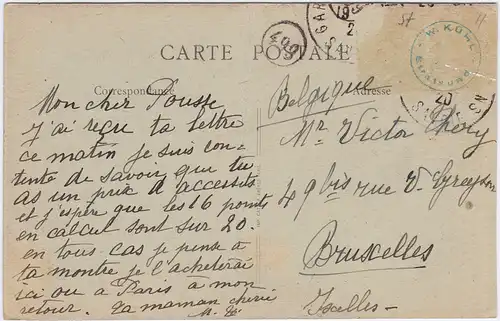 CARTE POSTALE
Correspondance
Adresse
409
GAR
19
W. KÜHL
20
Mon cher Pousse
J'ai reçu ta lettre
ce matin je suis con-
tente de savoir que tu
as un prix 2 accessits
et j'espère que les 16 points
en calcul sont sur 20.
en tous cas je pense à
ta montre je l'achèterai
ici ou à Paris à mon
retour. Ta maman chérie
Belgique
Mr Victor
49 bis rue V.
Bruxelles
Ixelles-